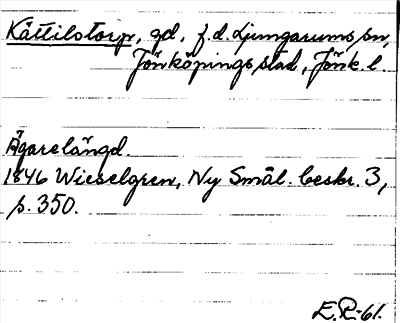 Kättilstorp, gd, f.d. Ljungarums sn,
Jönköpings stad, Jönk. l.
Ägarelängd.
1846 Wieselgren, Ny Smål. beskr. 3,
s. 350.
E.R-61.